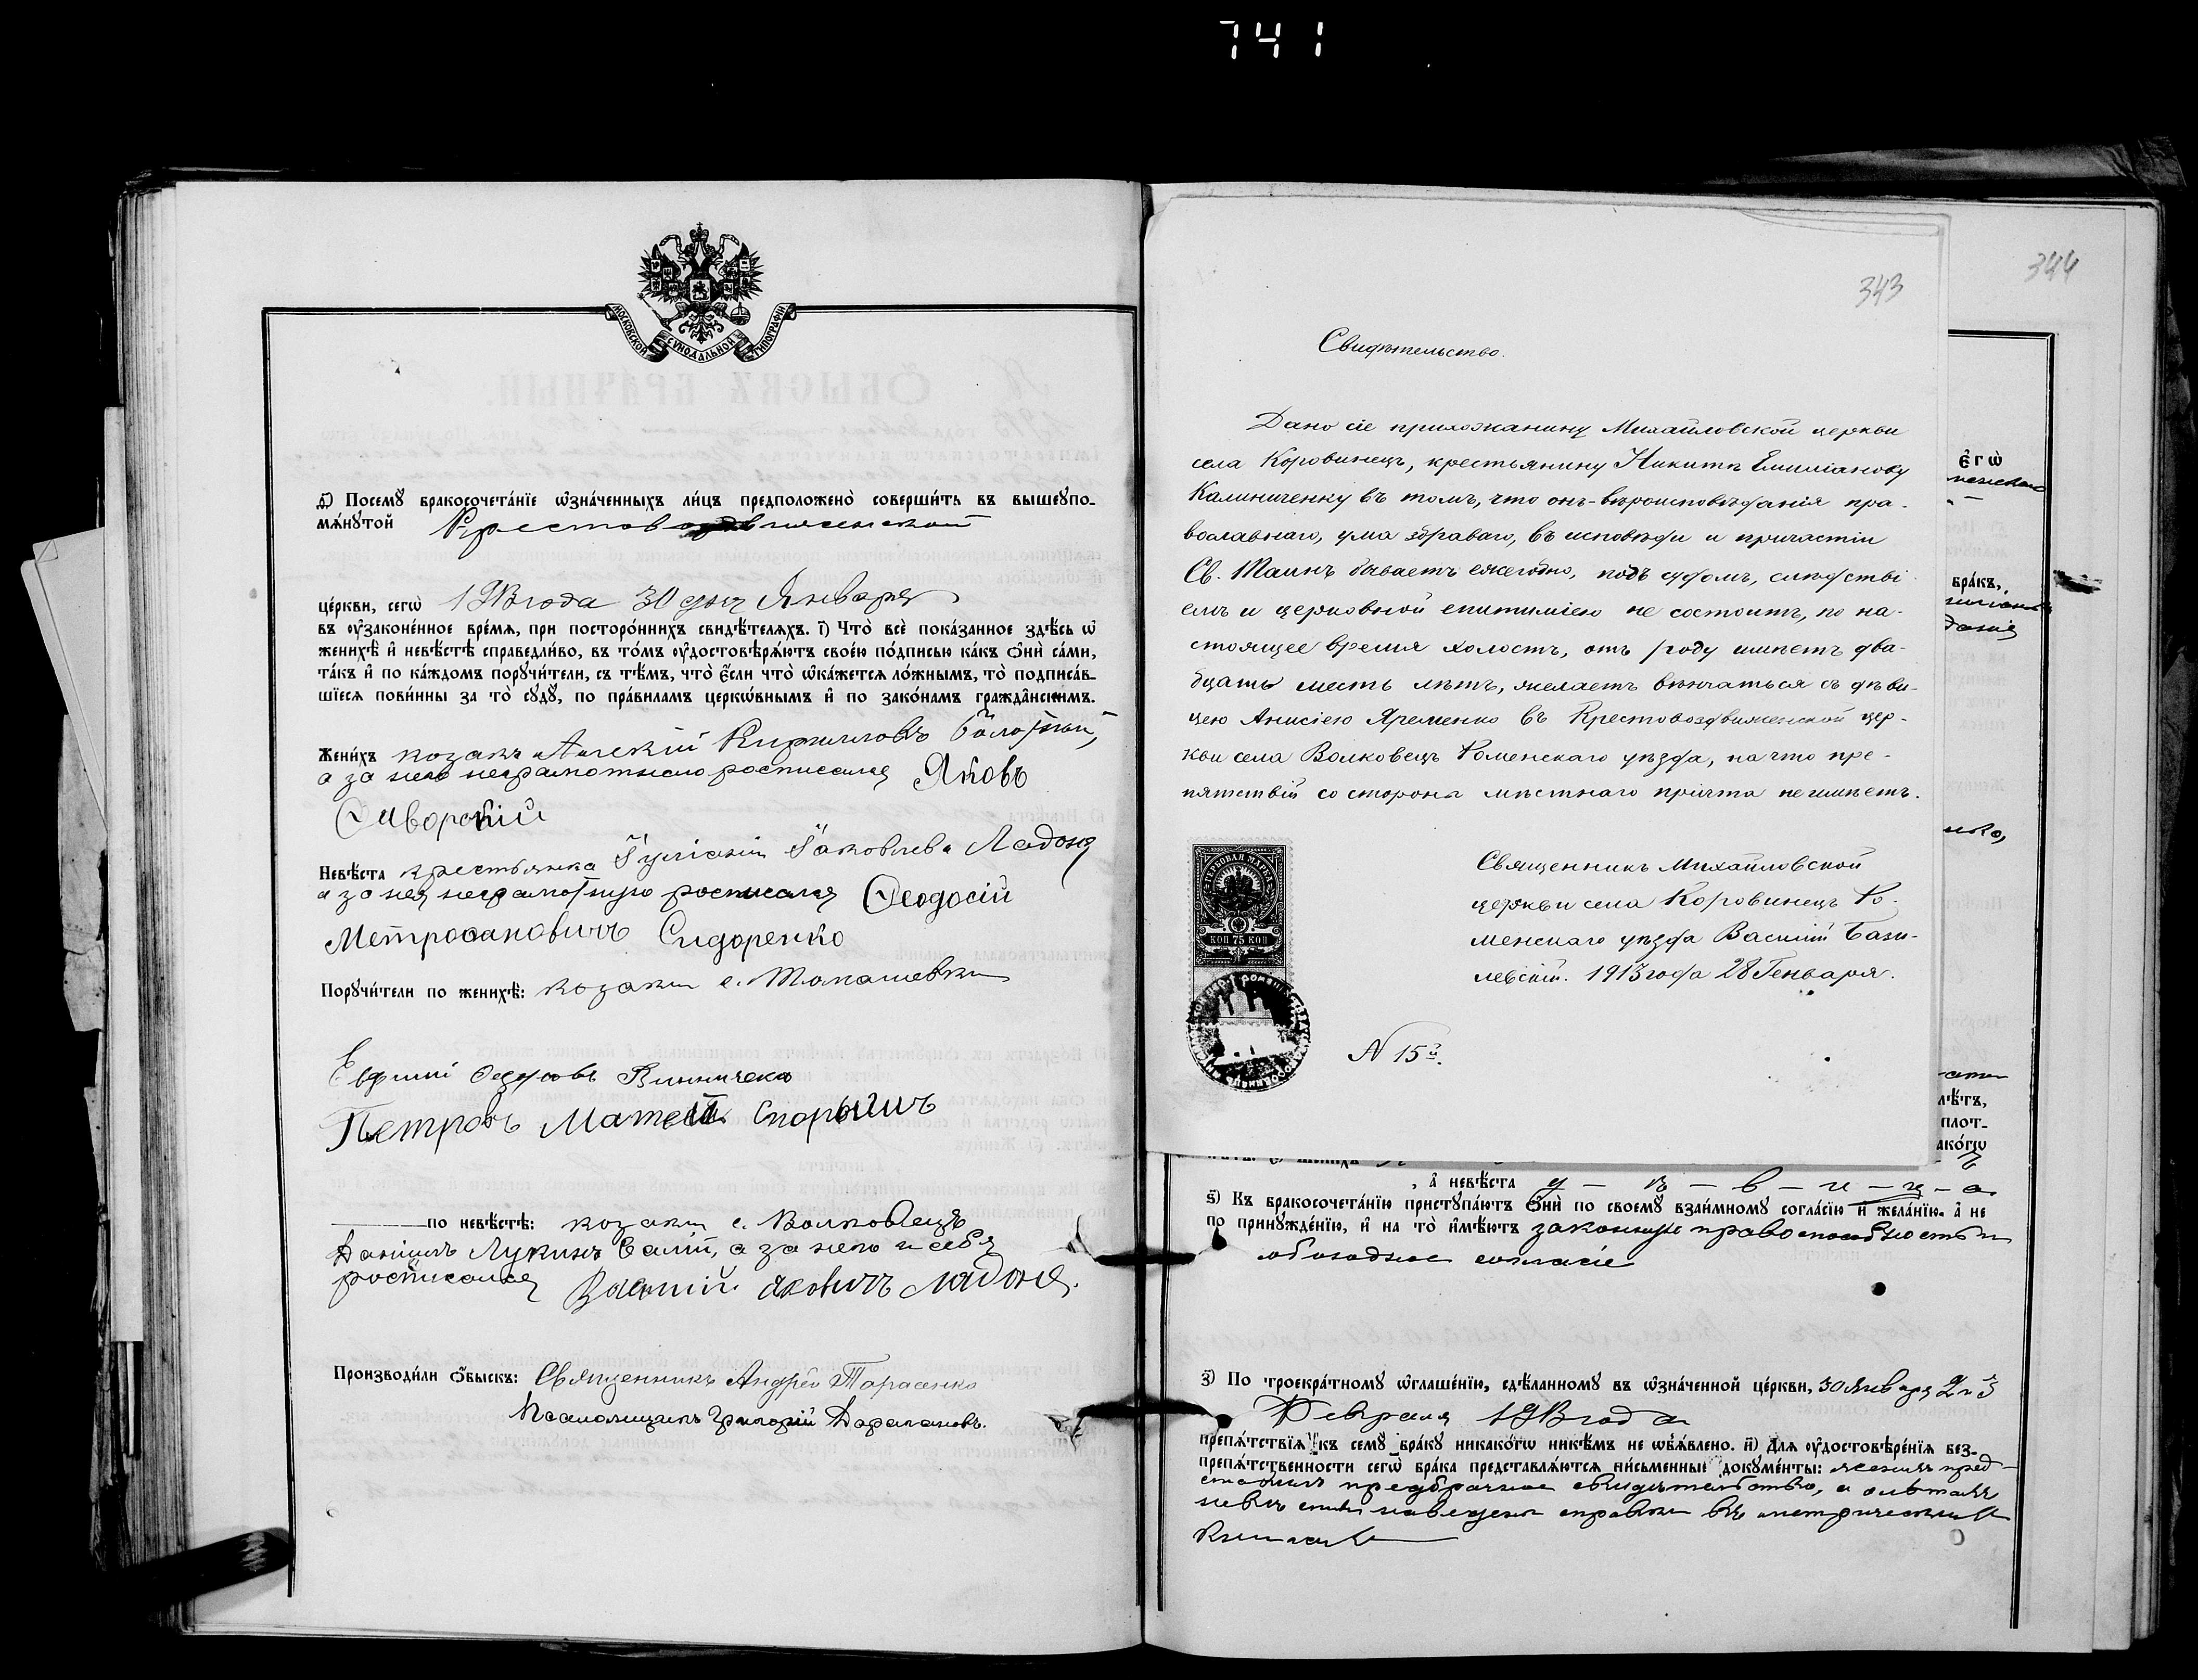 741
МОСКОВСКОЙ СѴНОДАЛЬНОЙ ТИПОГРАФІИ
д҃) Посемꙋ бракосочета́нїе ѡ҆зна́ченныхъ ли́цъ предположено̀ соверши́ть въ вышеꙋпо-
мѧ́нꙋтой Крестовоздвиженской
це́ркви, сегѡ̀ 1913 года 30 дня Января
въ ᲂу҆законе́нное вре́мѧ, при посторо́ннихъ свидѣ́телѧхъ. і҃) Что̀ всѐ пока́занное здѣ́сь ѡ҆
женихѣ̀ и҆ невѣ́стѣ справедли́во, въ то́мъ ᲂу҆достовѣрѧ́ютъ свое́ю по́дписью ка́къ ѻ҆нѝ са́ми,
та́къ и҆ по ка́ждомъ порꙋчи́тели, съ тѣ́мъ, что̀ є҆́сли что̀ ѡ҆ка́жетсѧ ло́жнымъ, то̀ подписа́в-
шїесѧ пови́нны за то̀ сꙋдꙋ̀, по пра́виламъ церкѡ́внымъ и҆ по зако́намъ гражда̂нскимъ.
Жени́хъ козакъ Кирилловъ
а за него неграмотнаго росписался Яковъ
Сиворский
Невѣ́ста крестьянка Іуліанія Іаковлева Ладоня
а за нея неграмотную росписался Ѳеодосій
Метрофановичъ Сидоренко
Порꙋчи́тели по женихѣ̀: козаки с. Томашевки
Евфимій Винниченко
Петровъ Матвей
по невѣ́стѣ: козаки с. Волковецъ
Даніилъ Лукинъ Салій, а за него и себя
росписался Василий Яковичъ Ладоня.
Производи́ли ѻ҆́быскъ: Священникъ Андрей Тарасенко
Псаломщикъ Григорій
344
343
Свидѣтельство.
Дано сіе прихожанину Михайловской церкви
села Коровинецъ, крестьянину Никитѣ Емиліанову
Калиниченку въ томъ, что онъ-вѣроисповѣданія пра-
вославнаго, ума здраваго, въ исповѣди и причастіи
Св. Таинъ бываетъ ежегодно, подъ судомъ, слѣдстві-
емъ и церковной епитиміею не состоитъ, по на-
стоящее время холостъ, отъ роду имѣетъ два-
дцать шесть лѣтъ, желаетъ вѣнчаться съ дѣви-
цею Анисіею Яременко въ Крестовоздвиженской цер-
кви села Волковецъ Роменскаго уѣзда, на что пре-
пятствій со стороны мѣстнаго причта не имѣетъ.
Священникъ Михайловской
церкви села Коровинецъ Ро-
менскаго уѣзда Василій Бази-
левскій. 1913 года 28 Генваря.
ГЕРБОВАЯ МАРКА
КОП 75 КОП
N 15й.
є҆гѡ̀
бра́къ,
лѣ́тъ,
плот-
ако́гѡ
, а҆ невѣ́ста д — ѣ — в — и — ц — а
ѕ҃) Къ бракосочета́нїю пристꙋпа́ютъ ѻ҆нѝ по своемꙋ̀ взаи́мномꙋ согла́сїю и҆ жела́нїю, а҆ не
по принꙋжде́нїю, и҆ на то̀ и҆мѣ́ютъ законную правоспособность и
обоюдное согласіе
з҃) По троекра́тномꙋ ѡ҆глаше́нїю, сдѣ́ланномꙋ въ ѡ҆зна́ченной це́ркви, 30 Января 2 и 3
Февраля 1913 года
препѧ́тствїѧ къ семꙋ̀ бра́кꙋ никако́гѡ никѣ́мъ не ѡ҆б̾ѧ́влено. и҃) Длѧ ᲂу҆достовѣре́нїѧ без-
препѧ́тственности сегѡ̀ бра́ка представлѧ́ютсѧ пи́сьменные докꙋме́нты: женихъ пред-
ставилъ предбрачное свидѣтельство, о лѣтахъ
невѣсты наведены справки въ метрическихъ
книгахъ